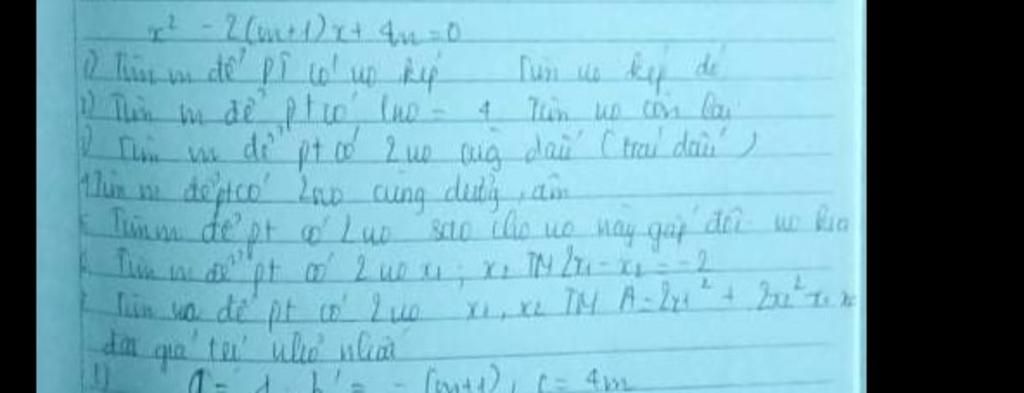 x² - 2(m+1)x + 4m = 0
1) Tìm m để PT có no kép Tìm no kép đó
2) Tìm m để pt có 1 no = 4 Tìm no còn lại
3) Tìm m để pt có 2 no cùng dấu (trái dấu)
4 Tìm m để pt có 2 no cùng dương, âm
5. Tìm m để pt có 2 no sao cho no này gấp đôi no kia
6. Tìm m để pt có 2 no x1; x2 TM 2x1 - x2 = -2
7. Tìm m để pt có 2 no x1, x2 TM A = 2x1² + 2x2² - x1 x
đạt giá trị nhỏ nhất
1) a = 1 b' = - (m+1), c = 4m